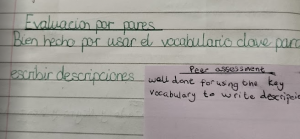 Evaluación por pares
Bien hecho por usar el vocabulario clave para
escribir descripciones
Peer assessment
well done for using the key
vocabulary to write descripcio